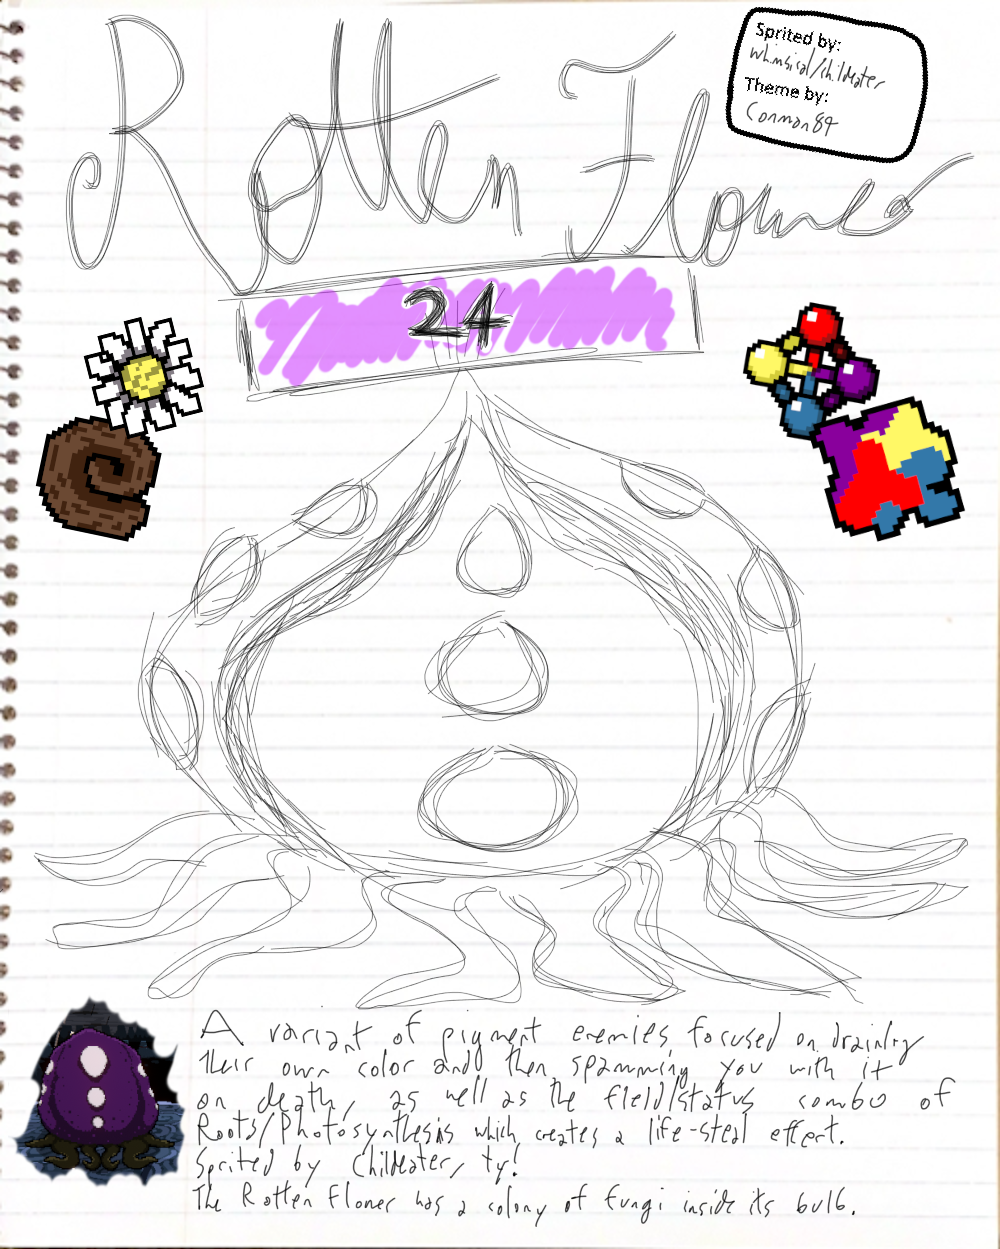 Rotten Flower
Sprited by:
whimsical/childeater
Theme by:
Conman84
24
A variant of pigment enemies focused on draining
their own color and then spamming you with it
on death, as well as the field/status combo of
Roots/Photosynthesis which creates a life-steal effect.
Sprited by Childeater, ty!
The Rotten Flower has a colony of fungi inside its bulb.